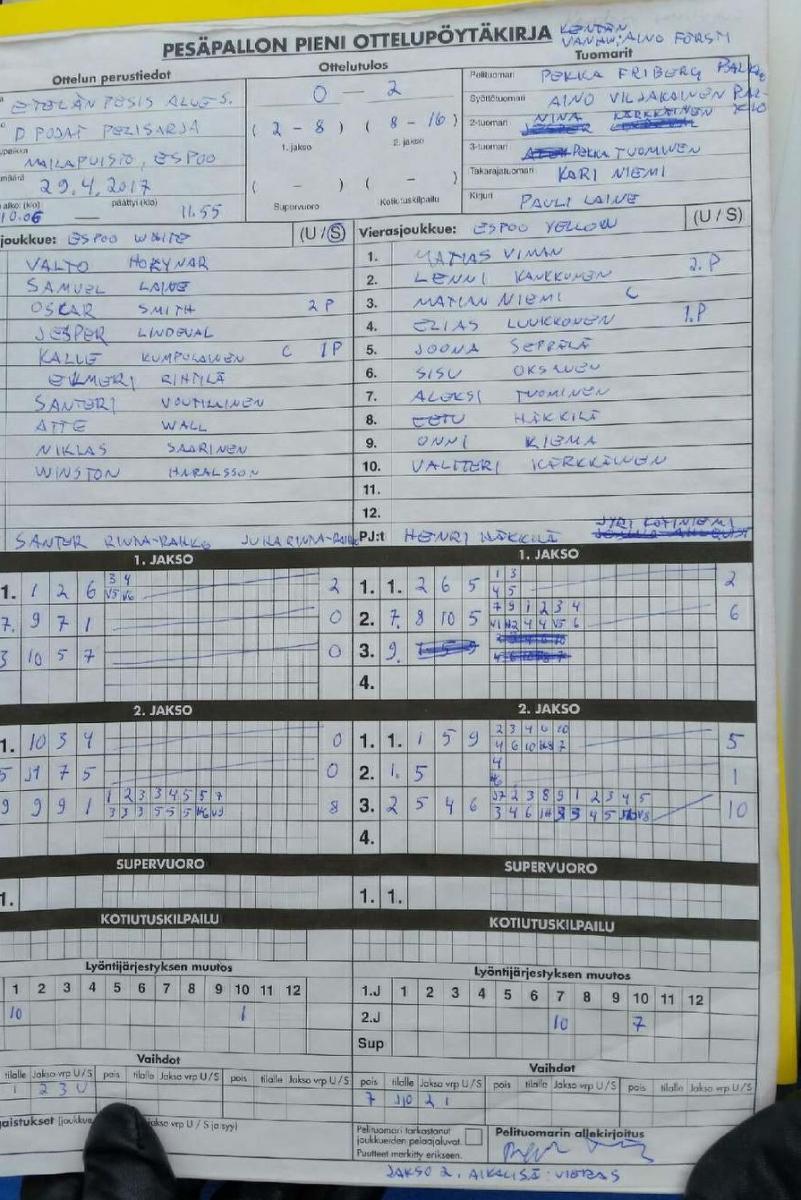 PESÄPALLON PIENI OTTELUPÖYTÄKIRJA
KENTÄN
VANH: AINO FORSM
Ottelun perustiedot
Ottelutulos
Tuomarit
ETELÄN PESIS ALUE S.
0 — 2
Pelituomari PEKKA FRIBERG
D POJAT PELISARJA
( 2 - 8 ) ( 8 - 16 )
1. jakso 2. jakso
Syöttötuomari AINO VILJAKAINEN
2-tuomari NINA KÄRKKÄINEN
MAILAPUISTO, ESPOO
3-tuomari PEKKA TUOMINEN
29.4.2017
( - ) ( - )
Takarajatuomari KARI NIEMI
alkoi (klo) päättyi (klo)
10.06 — 11.55
Supervuoro Kotiutuskilpailu
Kirjuri PAULI LAINE
joukkue: ESPOO WHITE (U / S)
Vierasjoukkue: ESPOO YELLOW (U / S)
VALTO HORYNAR
SAMUEL LAINE
OSKAR SMITH 2 P
JESPER LINDEVAL
KALLE KUMPULAINEN C 1P
ELMERI RIHTILÄ
SANTERI VOUTILAINEN
ATTE WALL
NIKLAS SAARINEN
WINSTON HARALSSON
1. MATIAS VIMAN
2. LENNI KANKKUNEN 2.P
3. MATIAN NIEMI C
4. ELIAS LUUKKONEN 1.P
5. JOONA SEPPÄLÄ
6. SISU OKSANEN
7. ALEKSI TUOMINEN
8. EETU HÄKKILÄ
9. ONNI KIEMA
10. VALTTERI KÄRKKÄINEN
11.
12.
SANTER RINNA-RAHKO JUHA RINNA-
PJ:t HENRI HÄKKILÄ JYRI KOTINIEMI
1. JAKSO
1. 1 2 6 3 4 2
V5 V6
7. 9 7 1 0
3 10 5 7 0
1. JAKSO
1. 1. 2 6 5 1 3 2
4 5
2. 7. 8 10 5 7 9 1 2 3 4 6
3. 9.
4.
2. JAKSO
1. 10 3 4 0
5 J1 7 5 0
9 9 9 1 1 2 3 3 4 5 5 7 8
2. JAKSO
1. 1. 1 5 9 2 3 4 6 10 5
2. 1. 5 4 1
3. 2 5 4 6 J7 2 3 8 9 1 2 3 4 5 10
4.
SUPERVUORO
1.
SUPERVUORO
1. 1.
KOTIUTUSKILPAILU
KOTIUTUSKILPAILU
Lyöntijärjestyksen muutos
1 2 3 4 5 6 7 8 9 10 11 12
10 1
Lyöntijärjestyksen muutos
1.J 1 2 3 4 5 6 7 8 9 10 11 12
2.J 10 7
Sup
Vaihdot
tilalle Jakso vrp U/S pois tilalle Jakso vrp U/S pois tilalle Jakso vrp U/S
1 2 3 U
Vaihdot
pois tilalle Jakso vrp U/S pois tilalle Jakso vrp U/S pois tilalle Jakso vrp U/S
7 J10 2 1
jakso vrp U / S ja syy)
Pelituomari tarkastanut
joukkueiden pelaajaluvat.
Puutteet merkitty erikseen.
Pelituomarin allekirjoitus
JAKSO 2. AIKALISÄ: VIERAS